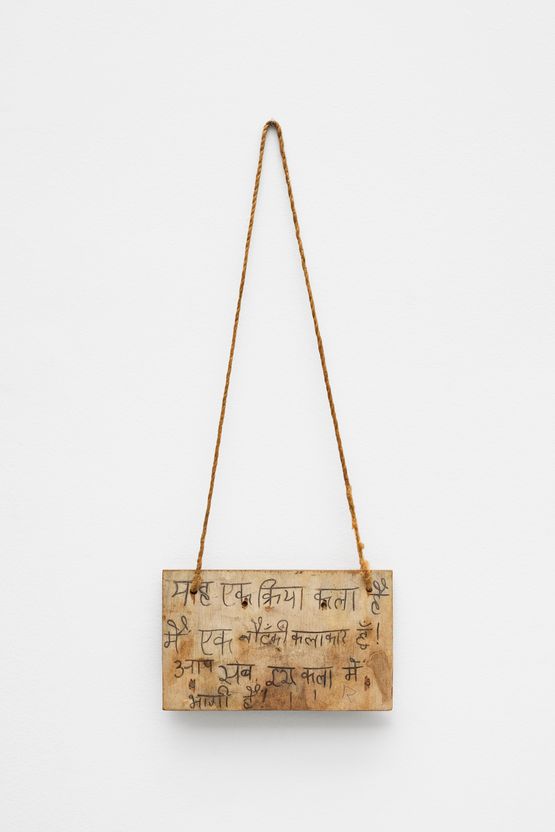 यह एक क्रिया कला है
मैं एक नौटंकी कलाकार हूँ!
आप सब इस कला में
भागी हैं! ! !